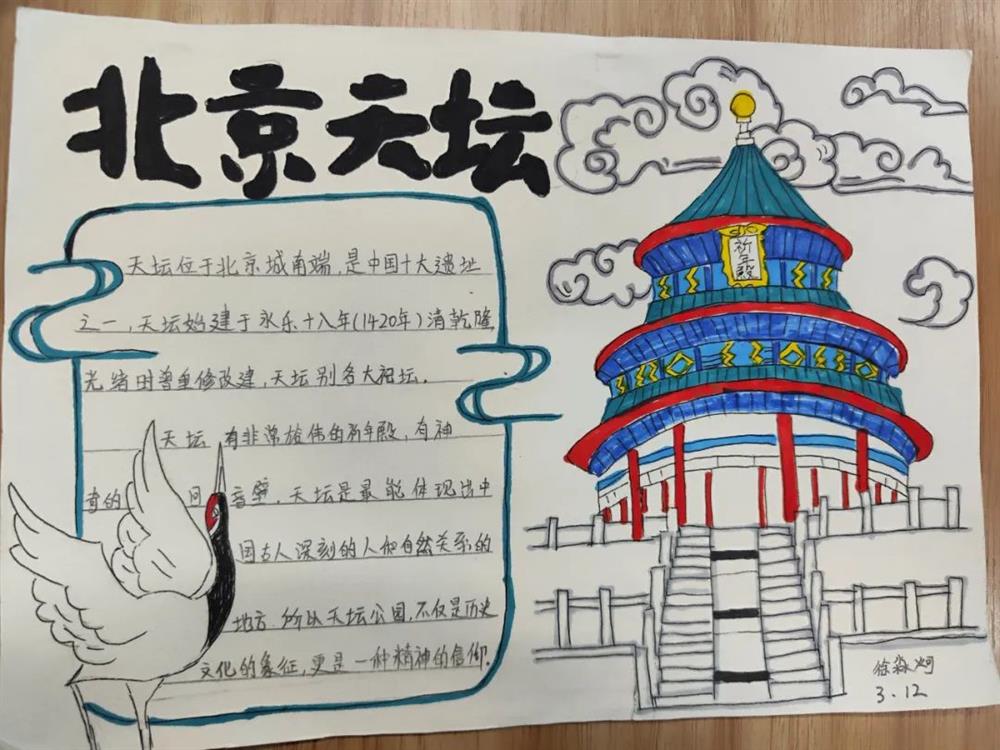 北京天坛
天坛位于北京城南端,是中国十大遗址
之一,天坛始建于永乐十八年(1420年)清乾隆
光绪时曾重修改建,天坛别名大祀坛.
天坛有非常雄伟的祈年殿,有神
奇的 回音壁,天坛是最能体现出中
国古人深刻的人和自然关系的
地方.所以天坛公园,不仅是历史
文化的象征,更是一种精神的信仰.
祈年殿
徐淼
3.12